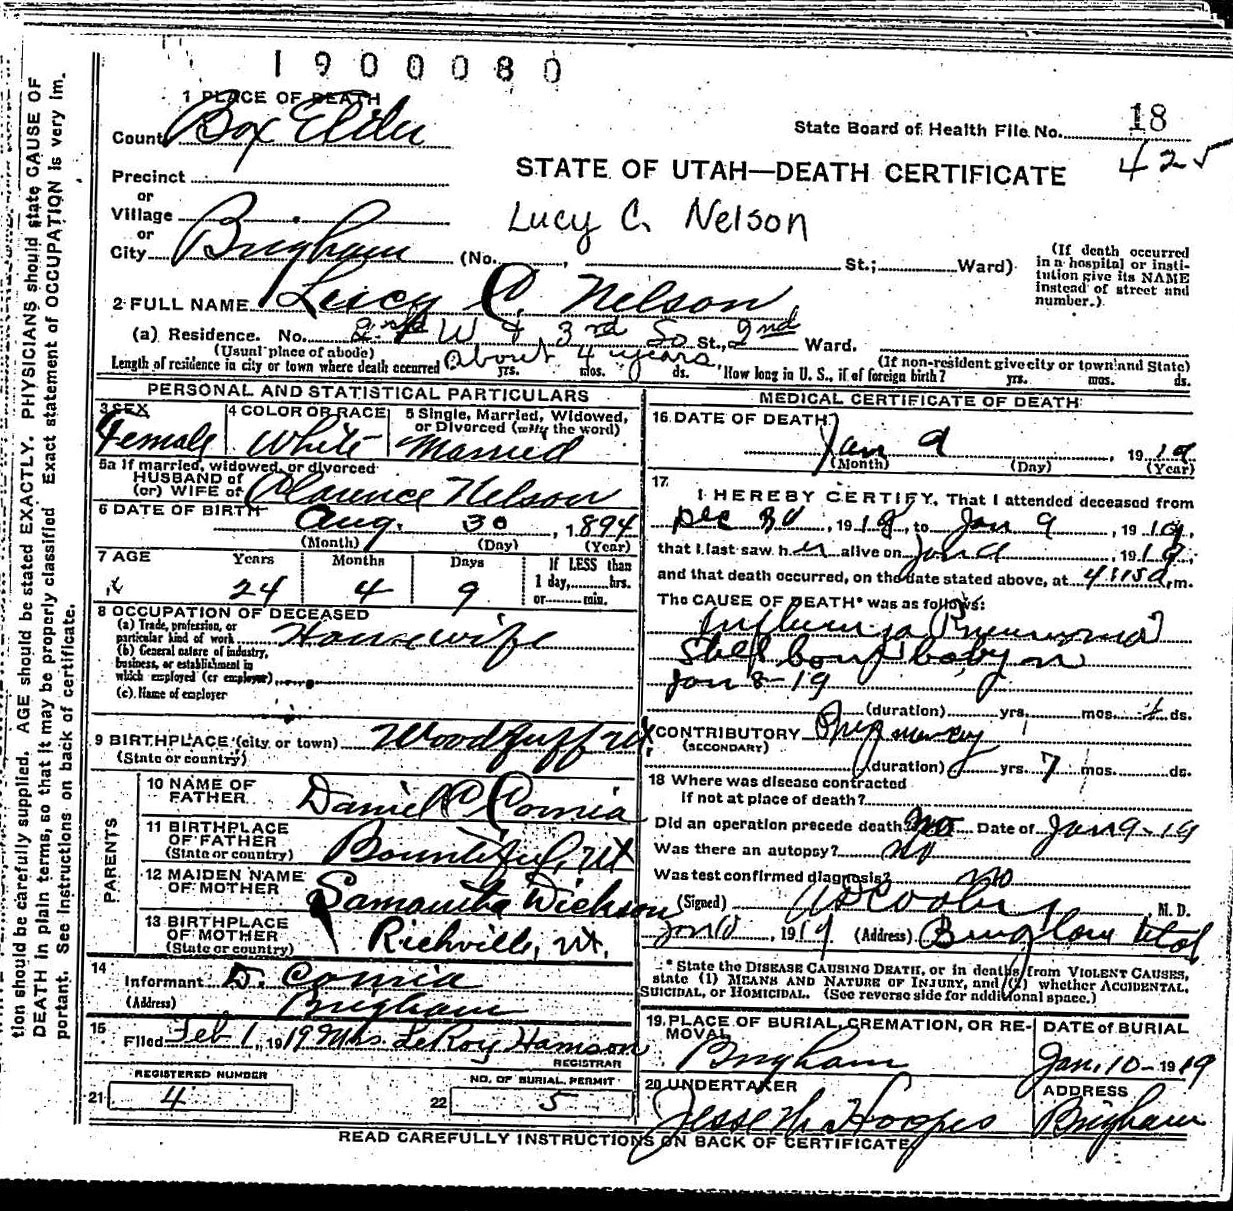 1900080
1 PLACE OF DEATH
County Box Elder
State Board of Health File No. 18
425
STATE OF UTAH—DEATH CERTIFICATE
Precinct
or
Village
or
City Brigham (No. , St.; Ward)
Lucy C. Nelson
(If death occurred in a hospital or insti-
tution give its NAME instead of street and number.)
2 FULL NAME Lucy C. Nelson
(a) Residence. No. 2nd W & 3rd So St., 2nd Ward.
(Usual place of abode)
(If non-resident give city or town and State)
Length of residence in city or town where death occurred About 4 years yrs. mos. ds. How long in U. S., if of foreign birth? yrs. mos. ds.
PERSONAL AND STATISTICAL PARTICULARS
3 SEX Female
4 COLOR OR RACE White
5 Single, Married, Widowed, or Divorced (write the word) Married
5a If married, widowed, or divorced
HUSBAND of
(or) WIFE of Clarence Nelson
6 DATE OF BIRTH Aug. 30, 1894
(Month) (Day) (Year)
7 AGE Years Months Days If LESS than
24 4 9 1 day, hrs.
or min.
8 OCCUPATION OF DECEASED
(a) Trade, profession, or particular kind of work Housewife
(b) General nature of industry, business, or establishment in which employed (or employer)
(c) Name of employer
9 BIRTHPLACE (city or town) Woodruff Ut.
(State or country)
PARENTS
10 NAME OF FATHER Daniel C Cornia
11 BIRTHPLACE OF FATHER Bountiful, Ut
(State or country)
12 MAIDEN NAME OF MOTHER Samantha Dickson
13 BIRTHPLACE OF MOTHER Richville, Ut.
(State or country)
14 Informant D. Cornia
(Address) Brigham
15 Filed Feb 1, 1919 Mrs. LeRoy Hamson
REGISTRAR
REGISTERED NUMBER
21 4
NO. OF BURIAL PERMIT
22 5
MEDICAL CERTIFICATE OF DEATH
16 DATE OF DEATH
Jan 9, 1919
(Month) (Day) (Year)
17 I HEREBY CERTIFY, That I attended deceased from
Dec 30, 1918, to Jan 9, 1919,
that I last saw her alive on Jan 9, 1919,
and that death occurred, on the date stated above, at m.
The CAUSE OF DEATH* was as follows:
Influenza (Pneumonia)
Still born baby on
Jan 8-19
(duration) yrs. mos. ds.
CONTRIBUTORY Pregnancy
(SECONDARY)
(duration) yrs. 7 mos. ds.
18 Where was disease contracted
If not at place of death?
Did an operation precede death? no Date of Jan 9-19
Was there an autopsy? no
Was test confirmed diagnosis? no
(Signed) M. D.
Jan 10, 1919 (Address) Brigham Utah
* State the DISEASE CAUSING DEATH, or in deaths from VIOLENT CAUSES,
state (1) MEANS AND NATURE OF INJURY, and (2) whether ACCIDENTAL,
SUICIDAL, or HOMICIDAL. (See reverse side for additional space.)
19. PLACE OF BURIAL, CREMATION, OR RE-
MOVAL Brigham
DATE of BURIAL
Jan. 10-1919
20 UNDERTAKER
Jesse W. Hoopes
ADDRESS
Brigham
READ CAREFULLY INSTRUCTIONS ON BACK OF CERTIFICATE
tion should be carefully supplied. AGE should be stated EXACTLY. PHYSICIANS should state CAUSE OF
DEATH in plain terms, so that it may be properly classified. Exact statement of OCCUPATION is very im-
portant. See Instructions on back of certificate.